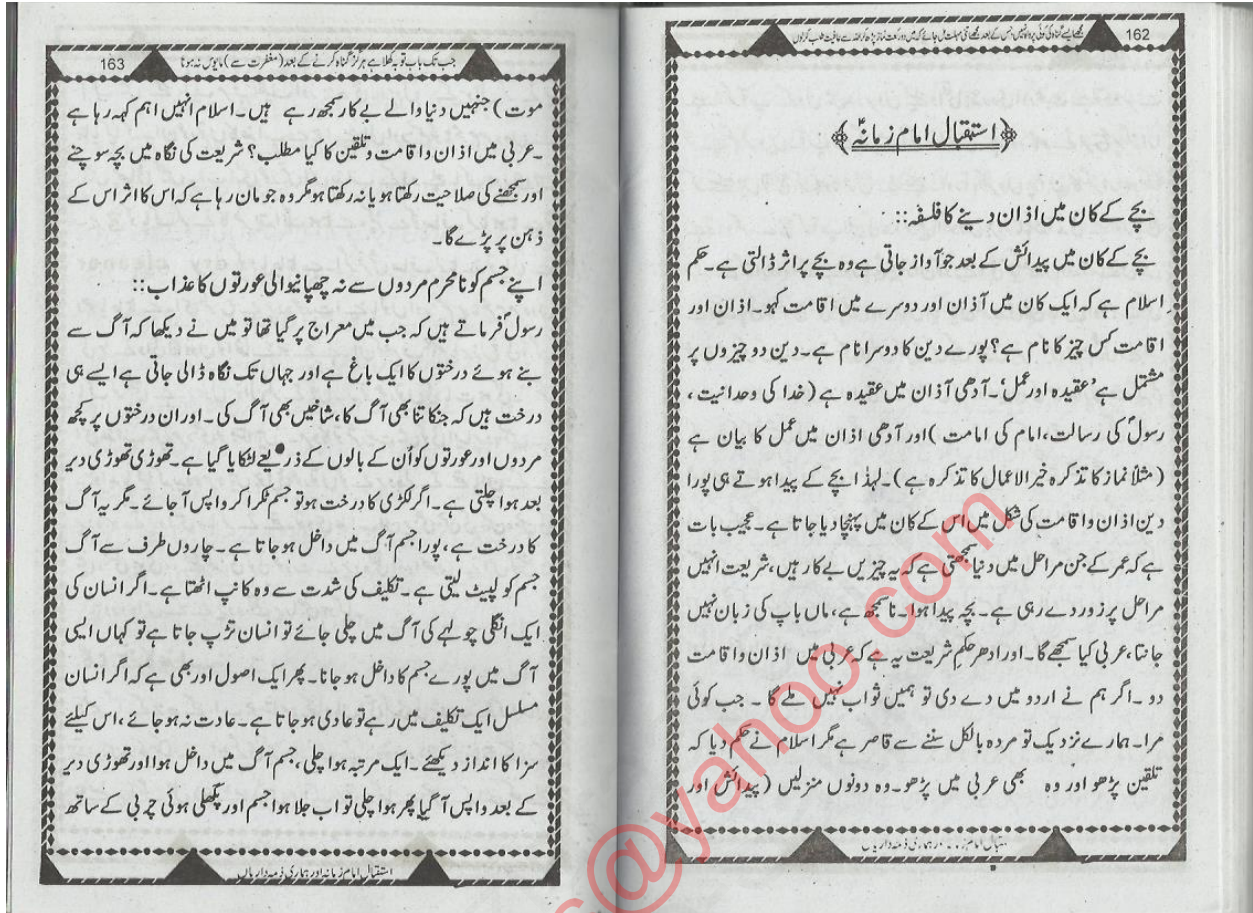 162
مجھے ایسے گناہ کی کوئی پرواہ نہیں جس کے بعد مجھے اتنی مہلت مل جائے کہ میں دو رکعت نماز پڑھ کر اللہ سے عافیت طلب کر لوں
﴿استقبال امام زمانہؑ﴾
بچے کے کان میں اذان دینے کا فلسفہ::
بچے کے کان میں پیدائش کے بعد جو آواز جاتی ہے وہ بچے پر اثر ڈالتی ہے۔ حکم
اسلام ہے کہ ایک کان میں آذان اور دوسرے میں اقامت کہو۔ اذان اور
اقامت کس چیز کا نام ہے؟ پورے دین کا دوسرا نام ہے۔ دین دو چیزوں پر
مشتمل ہے ’عقیدہ اور عمل‘۔ آدھی آذان میں عقیدہ ہے (خدا کی وحدانیت،
رسولؐ کی رسالت، امام کی امامت) اور آدھی اذان میں عمل کا بیان ہے
(مثلاً نماز کا تذکرہ خیر الاعمال کا تذکرہ ہے)۔ لہٰذا بچے کے پیدا ہوتے ہی پورا
دین اذان و اقامت کی شکل میں اس کے کان میں پہنچا دیا جاتا ہے۔ عجیب بات
ہے کہ عمر کے جن مراحل میں دنیا سمجھتی ہے کہ یہ چیزیں بے کار ہیں، شریعت انہیں
مراحل پر زور دے رہی ہے۔ بچہ پیدا ہوا۔ ناسمجھ ہے، ماں باپ کی زبان نہیں
جانتا، عربی کیا سمجھے گا۔ اور ادھر حکمِ شریعت یہ ہے کہ عربی میں اذان و اقامت
دو۔ اگر ہم نے اردو میں دے دی تو ہمیں ثواب نہیں ملے گا۔ جب کوئی
مرا۔ ہمارے نزدیک تو مردہ بالکل سننے سے قاصر ہے مگر اسلام نے حکم دیا کہ
تلقین پڑھو اور وہ بھی عربی میں پڑھو۔ وہ دونوں منزلیں (پیدائش اور
استقبال امام زمانہ اور ہماری ذمہ داریاں
جب تک باب توبہ کھلا ہے ہرگز گناہ کرنے کے بعد (مغفرت سے) مایوس نہ ہونا
163
موت) جنہیں دنیا والے بے کار سمجھ رہے ہیں۔ اسلام انہیں اہم کہہ رہا ہے
۔ عربی میں اذان و اقامت و تلقین کا کیا مطلب؟ شریعت کی نگاہ میں بچہ سوچنے
اور سمجھنے کی صلاحیت رکھتا ہو یا نہ رکھتا ہو مگر وہ جو مان رہا ہے کہ اس کا اثر اس کے
ذہن پر پڑے گا۔
اپنے جسم کو نامحرم مردوں سے نہ چھپانیوالی عورتوں کا عذاب::
رسولؐ فرماتے ہیں کہ جب میں معراج پر گیا تھا تو میں نے دیکھا کہ آگ سے
بنے ہوئے درختوں کا ایک باغ ہے اور جہاں تک نگاہ ڈالی جاتی ہے ایسے ہی
درخت ہیں کہ جنکا تنا بھی آگ کا، شاخیں بھی آگ کی۔ اور ان درختوں پر کچھ
مردوں اور عورتوں کو اُن کے بالوں کے ذریعے لٹکایا گیا ہے۔ تھوڑی تھوڑی دیر
بعد ہوا چلتی ہے۔ اگر لکڑی کا درخت ہو تو جسم ٹکرا کر واپس آ جائے۔ مگر یہ آگ
کا درخت ہے، پورا جسم آگ میں داخل ہو جاتا ہے۔ چاروں طرف سے آگ
جسم کو لپیٹ لیتی ہے۔ تکلیف کی شدت سے وہ کانپ اٹھتا ہے۔ اگر انسان کی
ایک انگلی چولہے کی آگ میں چلی جائے تو انسان تڑپ جاتا ہے تو کہاں ایسی
آگ میں پورے جسم کا داخل ہو جانا۔ پھر ایک اصول اور بھی ہے کہ اگر انسان
مسلسل ایک تکلیف میں رہے تو عادی ہو جاتا ہے۔ عادت نہ ہو جائے، اس کیلئے
سزا کا انداز دیکھئے۔ ایک مرتبہ ہوا چلی، جسم آگ میں داخل ہوا اور تھوڑی دیر
کے بعد واپس آ گیا پھر ہوا چلی تو اب جلا ہوا جسم اور پگھلی ہوئی چربی کے ساتھ
استقبال امام زمانہ اور ہماری ذمہ داریاں
s@yahoo.com